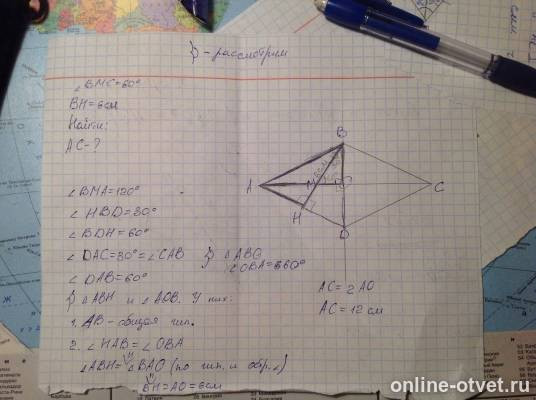 } - рассмотрим
∠BMC=60°
BH=6см
Найти:
AC-?
∠BMA=120°
∠HBD=30°
∠BDH=60°
∠DAC=30°=∠CAB } △ABO
∠OBA=60°
∠DAB=60°
} △ABH и △AOB. У них:
1. AB-общая гип.
2. ∠HAB=∠OBA
△ABH=△BAO (по гип. и остр.∠)
BH=AO=6см
AC=2AO
AC=12см
B
A
M
C
H
D
online-otvet.ru